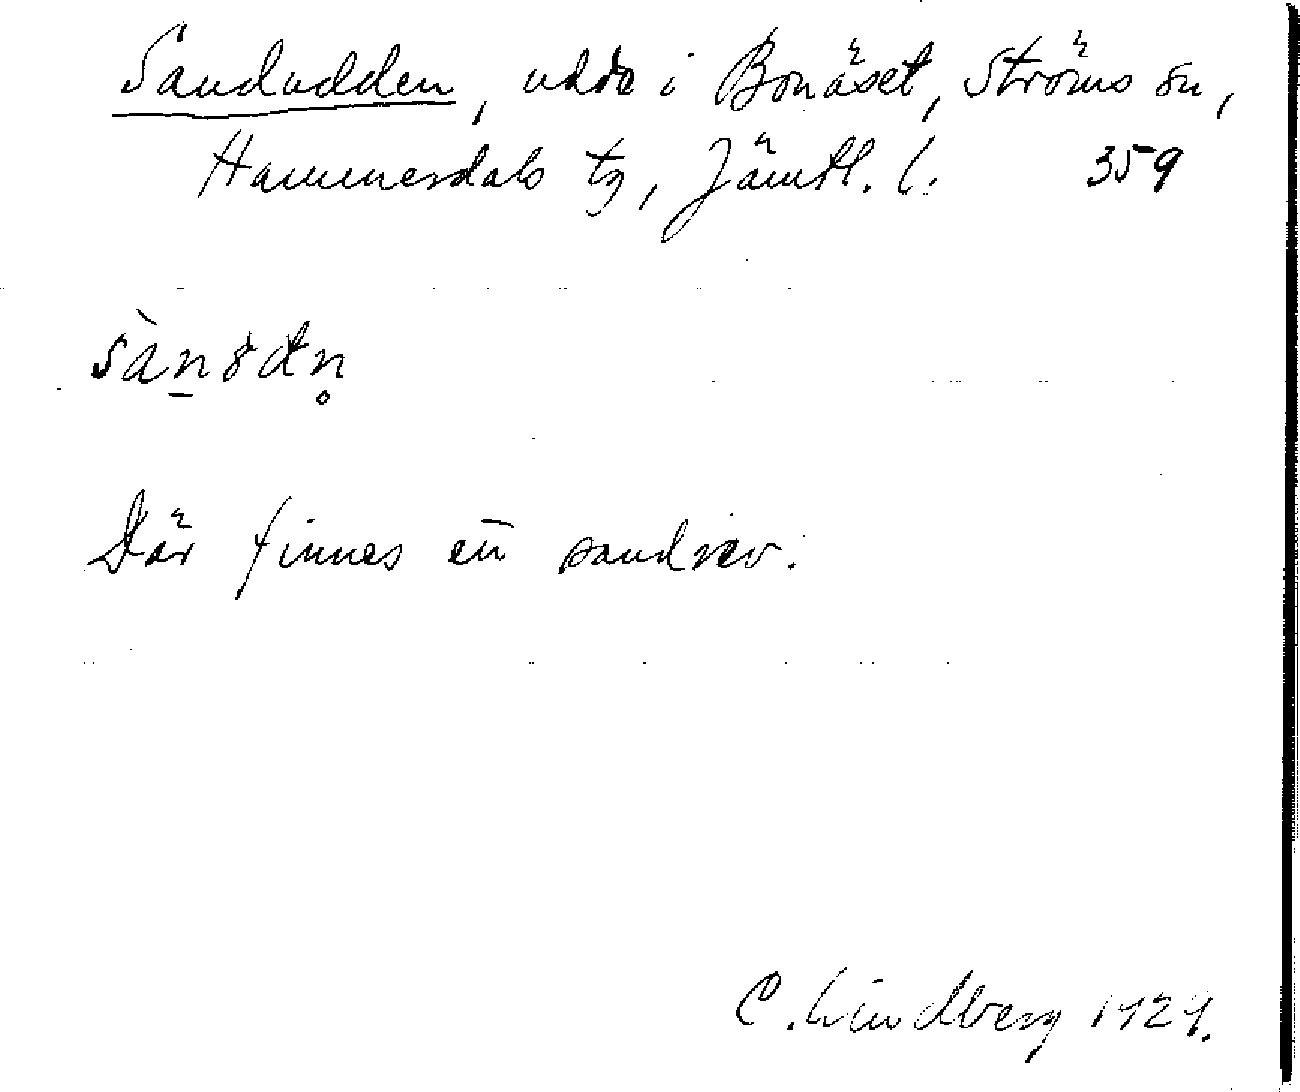 Sandudden, udde i Bonäset, Ströms sn,
Hammerdals tg, Jämtl. l. 359
Där finnes en sandrev.
C. Lindberg 1929.